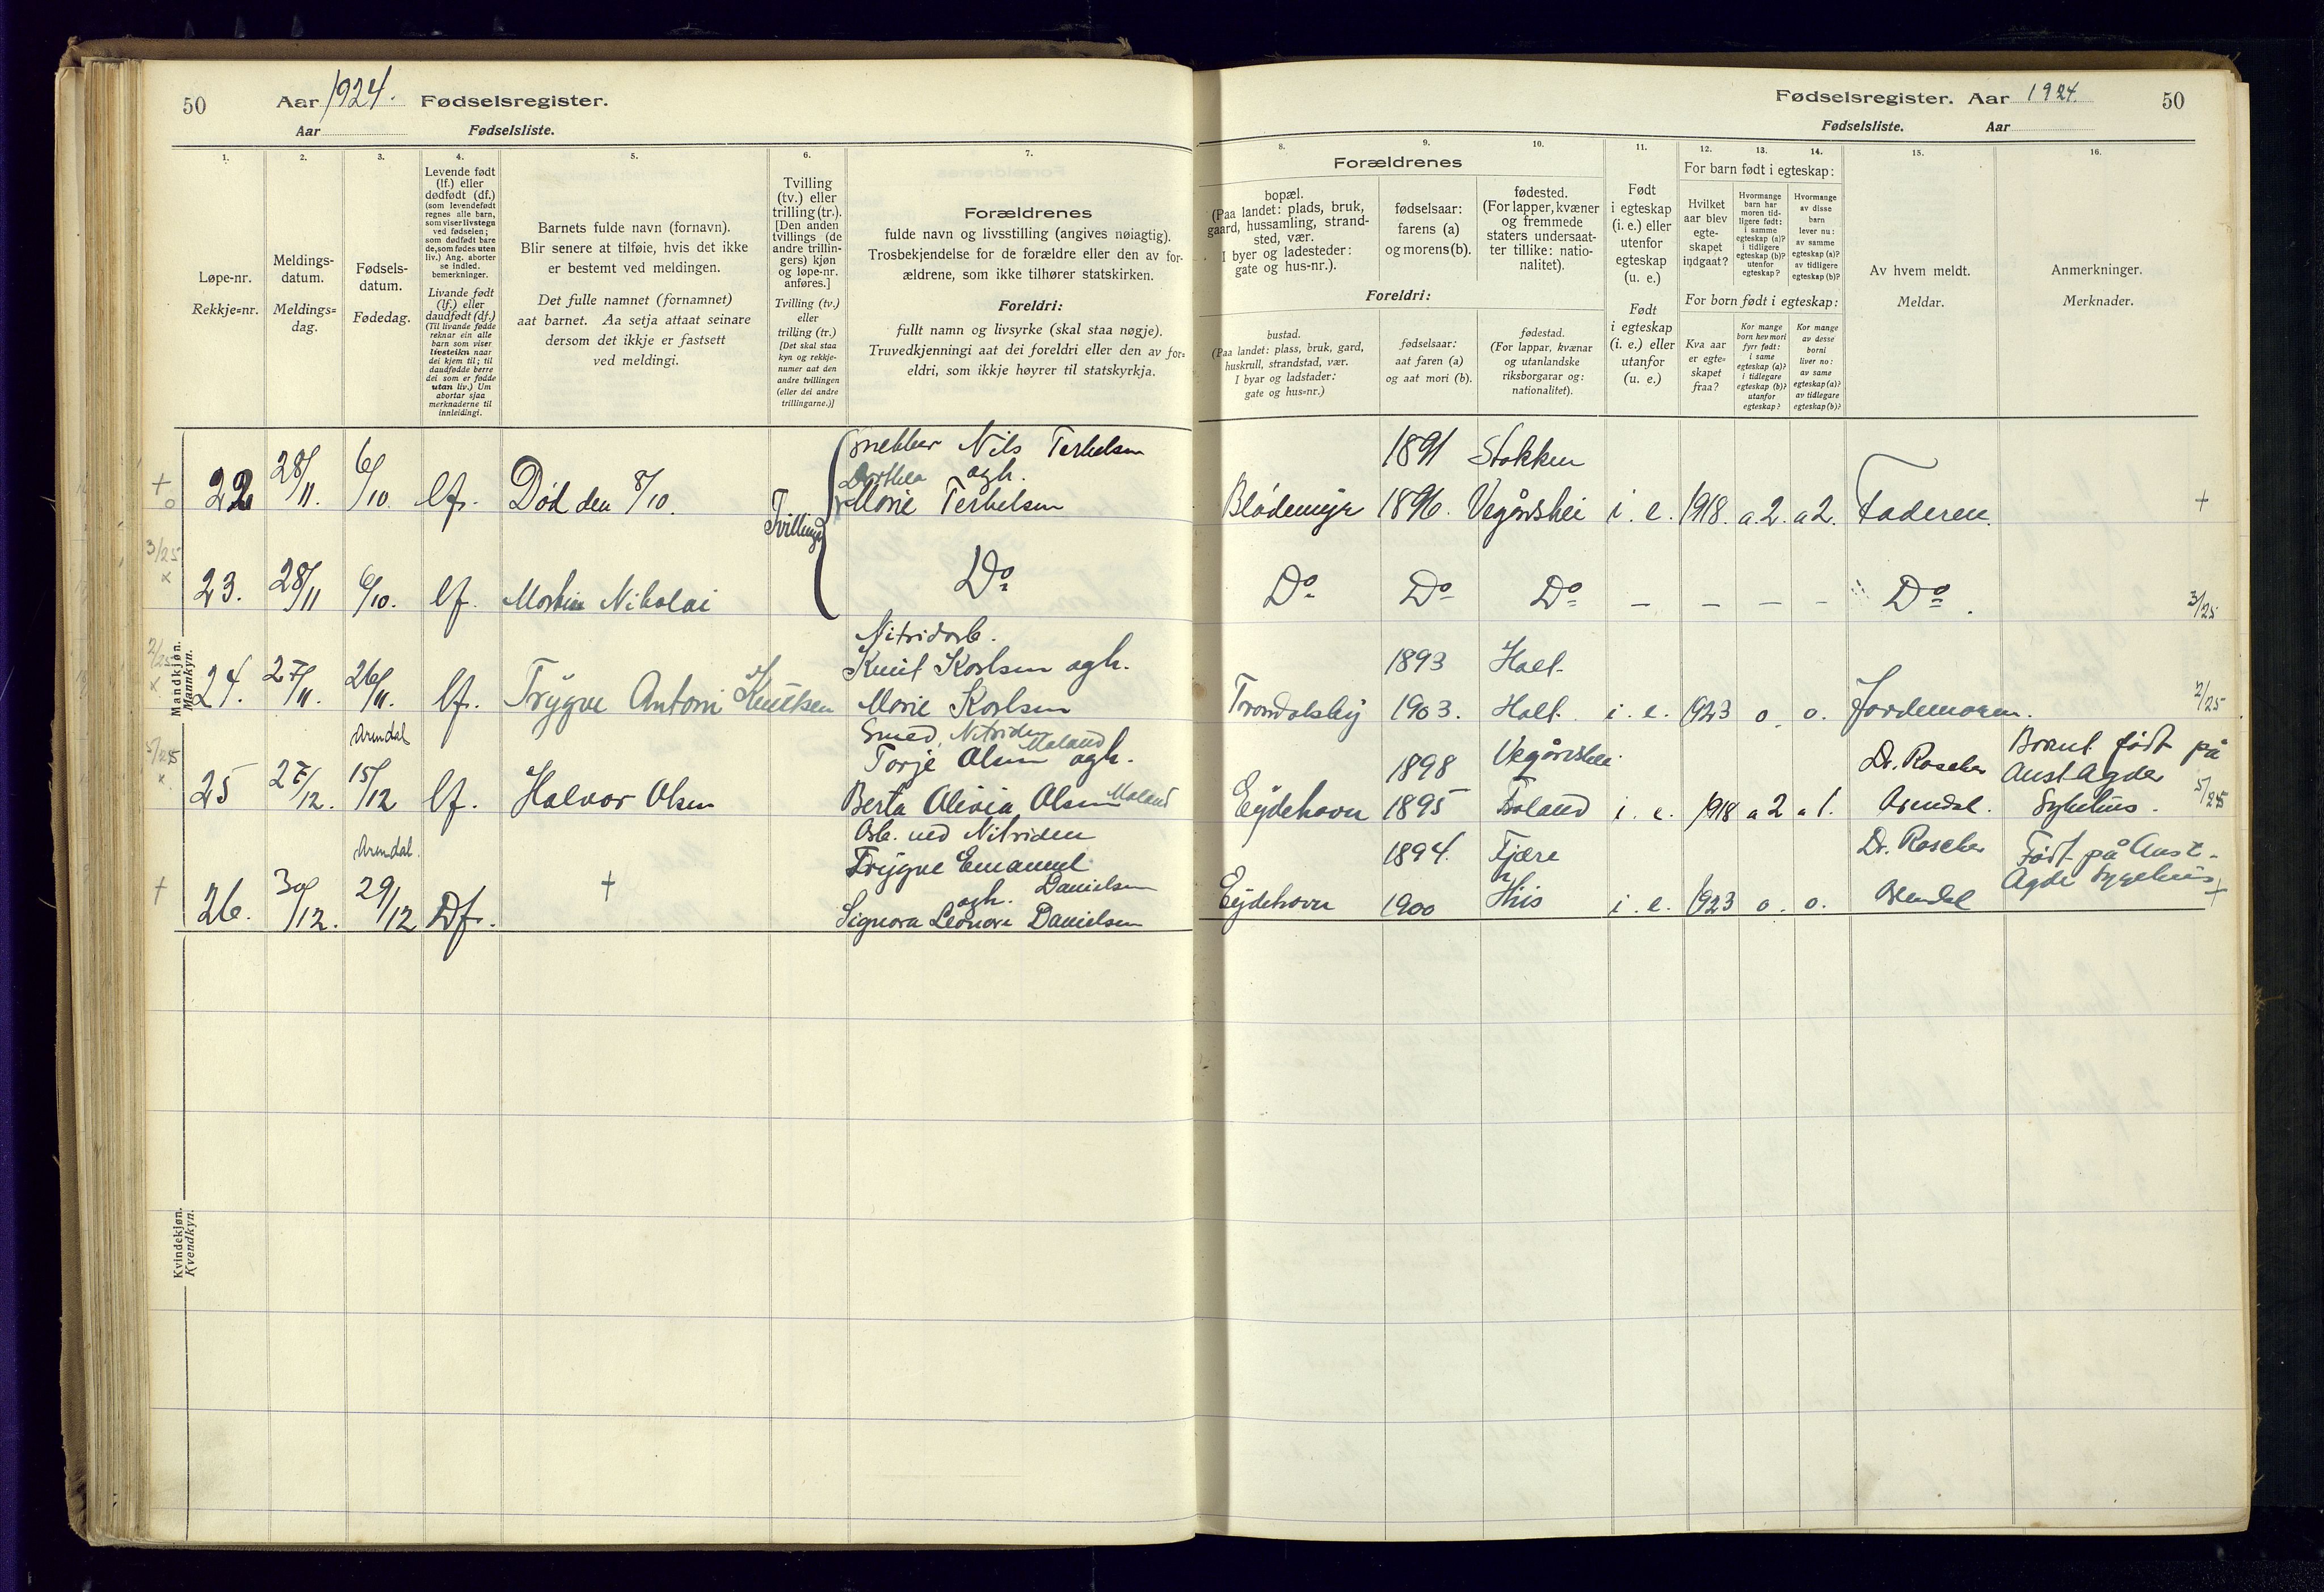 50 Aar 1924. Fødselsregister.
Aar Fødselsliste.
1.
Løpe-nr.
Rekkje=nr.
2.
Meldings-
datum.
Meldings=
dag.
3.
Fødsels-
datum.
Fødedag.
4.
Levende født
(lf.) eller
dødfødt (df.)
(som levendefødt
regnes alle barn,
som viser livstegn
ved fødselen;
som dødfødt bare
de, som fødes uten
liv.) Ang. aborter
se indled.
bemerkninger.
Livande født
(lf.) eller
daudfødt (df.)
(Til livande fødde
reknar ein alle
barn som viser
livsteikn naar
dei kjem til; til
daudfødde berre
dei som er fødde
utan liv.) Um
abortar sjaa
merknaderne til
innleidingi.
5.
Barnets fulde navn (fornavn).
Blir senere at tilføie, hvis det ikke
er bestemt ved meldingen.
Det fulle namnet (fornamnet)
aat barnet. Aa setja attaat seinare
dersom det ikkje er fastsett
ved meldingi.
6.
Tvilling
(tv.) eller
trilling (tr.).
[Den anden
tvillings (de
andre trillin-
gers) kjøn
og løpe-nr.
anføres.]
Tvilling (tv.)
eller
trilling (tr.)
[Det skal staa
kyn og rekkje-
numer aat den
andre tvillingen
(eller dei andre
trillingarne.)]
7.
Forældrenes
fulde navn og livsstilling (angives nøiagtig).
Trosbekjendelse for de forældre eller den av for-
ældrene, som ikke tilhører statskirken.
Foreldri:
fullt namn og livsyrke (skal staa nøgje).
Truvedkjenningi aat dei foreldri eller den av for=
eldri, som ikkje høyrer til statskyrkja.
Mandkjøn.
Mannkyn.
+ 22 28/11. 6/10. lf. Død den 8/10. Tvillinger
Nils Terkelsen
Dorthea ogh.
Marie Terkelsen
3/25 x 23. 28/11 6/10. lf. Martin Nikolai Do
2/25 x 24. 27/11. 26/11. lf. Trygve Antoni Knutsen
Nitridarb.
Knut Karlsen ogh.
Marie Karlsen
5/25 x 25 27/12. Arendal 15/12 lf. Halvor Olsen
Smed, Nitriden
Torje Olsen Moland ogh.
Berta Olivia Olsen Moland
+ 26. 30/12. Arendal. 29/12 Df. +
Arb. ved Nitriden
Trygve Emanuel
Danielsen
ogh.
Signora Leonora Danielsen
Kvindekjøn.
Kvendkyn.
Fødselsregister. Aar 1924. 50
Fødselsliste. Aar
8.
Forældrenes
bopæl.
(Paa landet: plads, bruk,
gaard, hussamling, strand-
sted, vær.
I byer og ladesteder:
gate og hus-nr.).
Foreldri:
bustad.
(Paa landet: plass, bruk, gard,
huskrull, strandstad, vær.
I byar og ladstader:
gate og hus=nr.)
9.
fødselsaar:
farens (a)
og morens (b).
fødselsaar:
aat faren (a)
og aat mori (b).
10.
fødested.
(For lapper, kvæner
og fremmede
staters undersaat-
ter tillike: natio-
nalitet).
fødestad.
(For lappar, kvænar
og utanlandske
riksborgarar og:
nationalitet).
11.
Født
i egteskap
(i. e.) eller
utenfor
egteskap
(u. e.)
Født
i egteskap
(i. e.) eller
utanfor
(u. e.)
12. 13. 14.
For barn født i egteskap:
Hvilket
aar blev
egte-
skapet
indgaat?
Hvormange
barn har
moren tid-
ligere født:
i samme
egteskap (a)?
i tidligere
egteskap (b)?
utenfor
egteskap?
Hvormange
av disse
barn
lever nu:
av samme
egteskap (a)?
av tidligere
egteskap (b)?
For born født i egteskap:
Kva aar
er egte=
skapet
fraa?
Kor mange
born hev mori
fyrr født:
i same
egteskap (a)?
i tidlegare
egteskap (b)?
utanfor
egteskap?
Kor mange
av desse
borni
liver no:
av same
egteskap (a)?
av tidlegare
egteskap (b)?
15.
Av hvem meldt.
Meldar.
16.
Anmerkninger.
Merknader.
1891 Stokken
Blødemyr 1896. Vegårshei i. e. 1918. a 2. a 2. Faderen. +
Do Do Do – – – – Do. 3/25
1893 Holt.
Trondalsby 1903. Holt. i. e. 1923 o. o. Jordemoren. 2/25
1898 Vegårshei. Dr. Roscher Barnet født på
Eydehavn 1895 i. e. 1918 a 2 a 1. Arendal. Aust Agder
Sykehus. 5/25
1894. Fjære Dr. Roscher Født på Aust-
Eydehavn 1900 His i. e. 1923 o. o. Arendal Agder Sygehus +